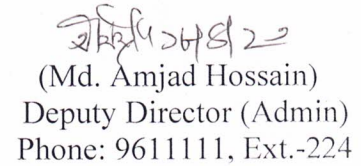 (Md. Amjad Hossain)
Deputy Director (Admin)
Phone: 9611111, Ext.-224